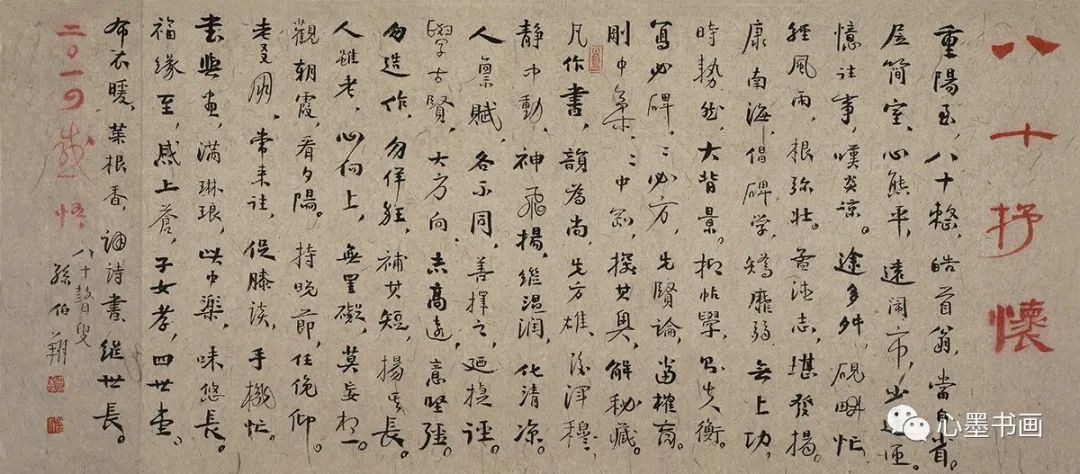 八十抒懷
重陽至,八十整,皓首翁,當自省。
居簡室,心態平,遠鬧市,少
憶往事,嘆炎涼。途多舛,硯畊忙。
經風雨,根弥壯。志,堪發揚。
康南海,倡碑學,矯靡弱,無上功,
時勢然,大背景。抑帖學,失衡。
寫必碑,:必方,先賢論,當榷商。
剛中柔,:中剛,探其奥,解秘藏。
凡作書,韻為尚,先方雄,後渾穆,
靜中動,神飛揚,继温潤,化清凉。
人禀賦,各不同,善擇之,捷
學古賢,大方向,志高遠,意堅強。
勿造作,勿佯狂,補其短,揚其長。
人雖老,心向上,無罣礙,莫妄想。
觀朝霞,看夕陽。持晚節,任俛仰。
老友朋,常来往,促膝談,手機忙。
書與画,滿琳琅,此中樂,味悠長。
福緣至,感上蒼,子女孝,四世堂。
布衣暖,菜根香,詩書畫,继世長。
二〇一四感悟
八十瞽叟
孫伯翔
心墨书画